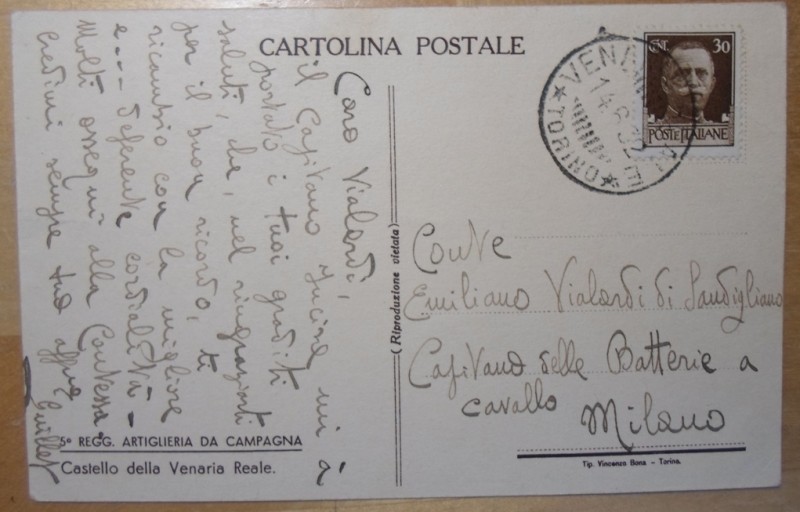 CARTOLINA POSTALE
CENT. 30
POSTE ITALIANE
TORINO
Caro Vialardi,
il Capitano mi à
portato i tuoi graditi
saluti, che, nel ringraziarti
per il buon ricordo, ti
ricambio con la migliore
e deferente cordialità -
Molti ossequi alla Contessa.
Credimi sempre tuo affmo
Guillet
(Riproduzione vietata)
Conte
Emiliano Vialardi di Sandigliano
Capitano delle Batterie a
cavallo
Milano
5° REGG. ARTIGLIERIA DA CAMPAGNA
Castello della Venaria Reale.
Tip. Vincenzo Bona - Torino.